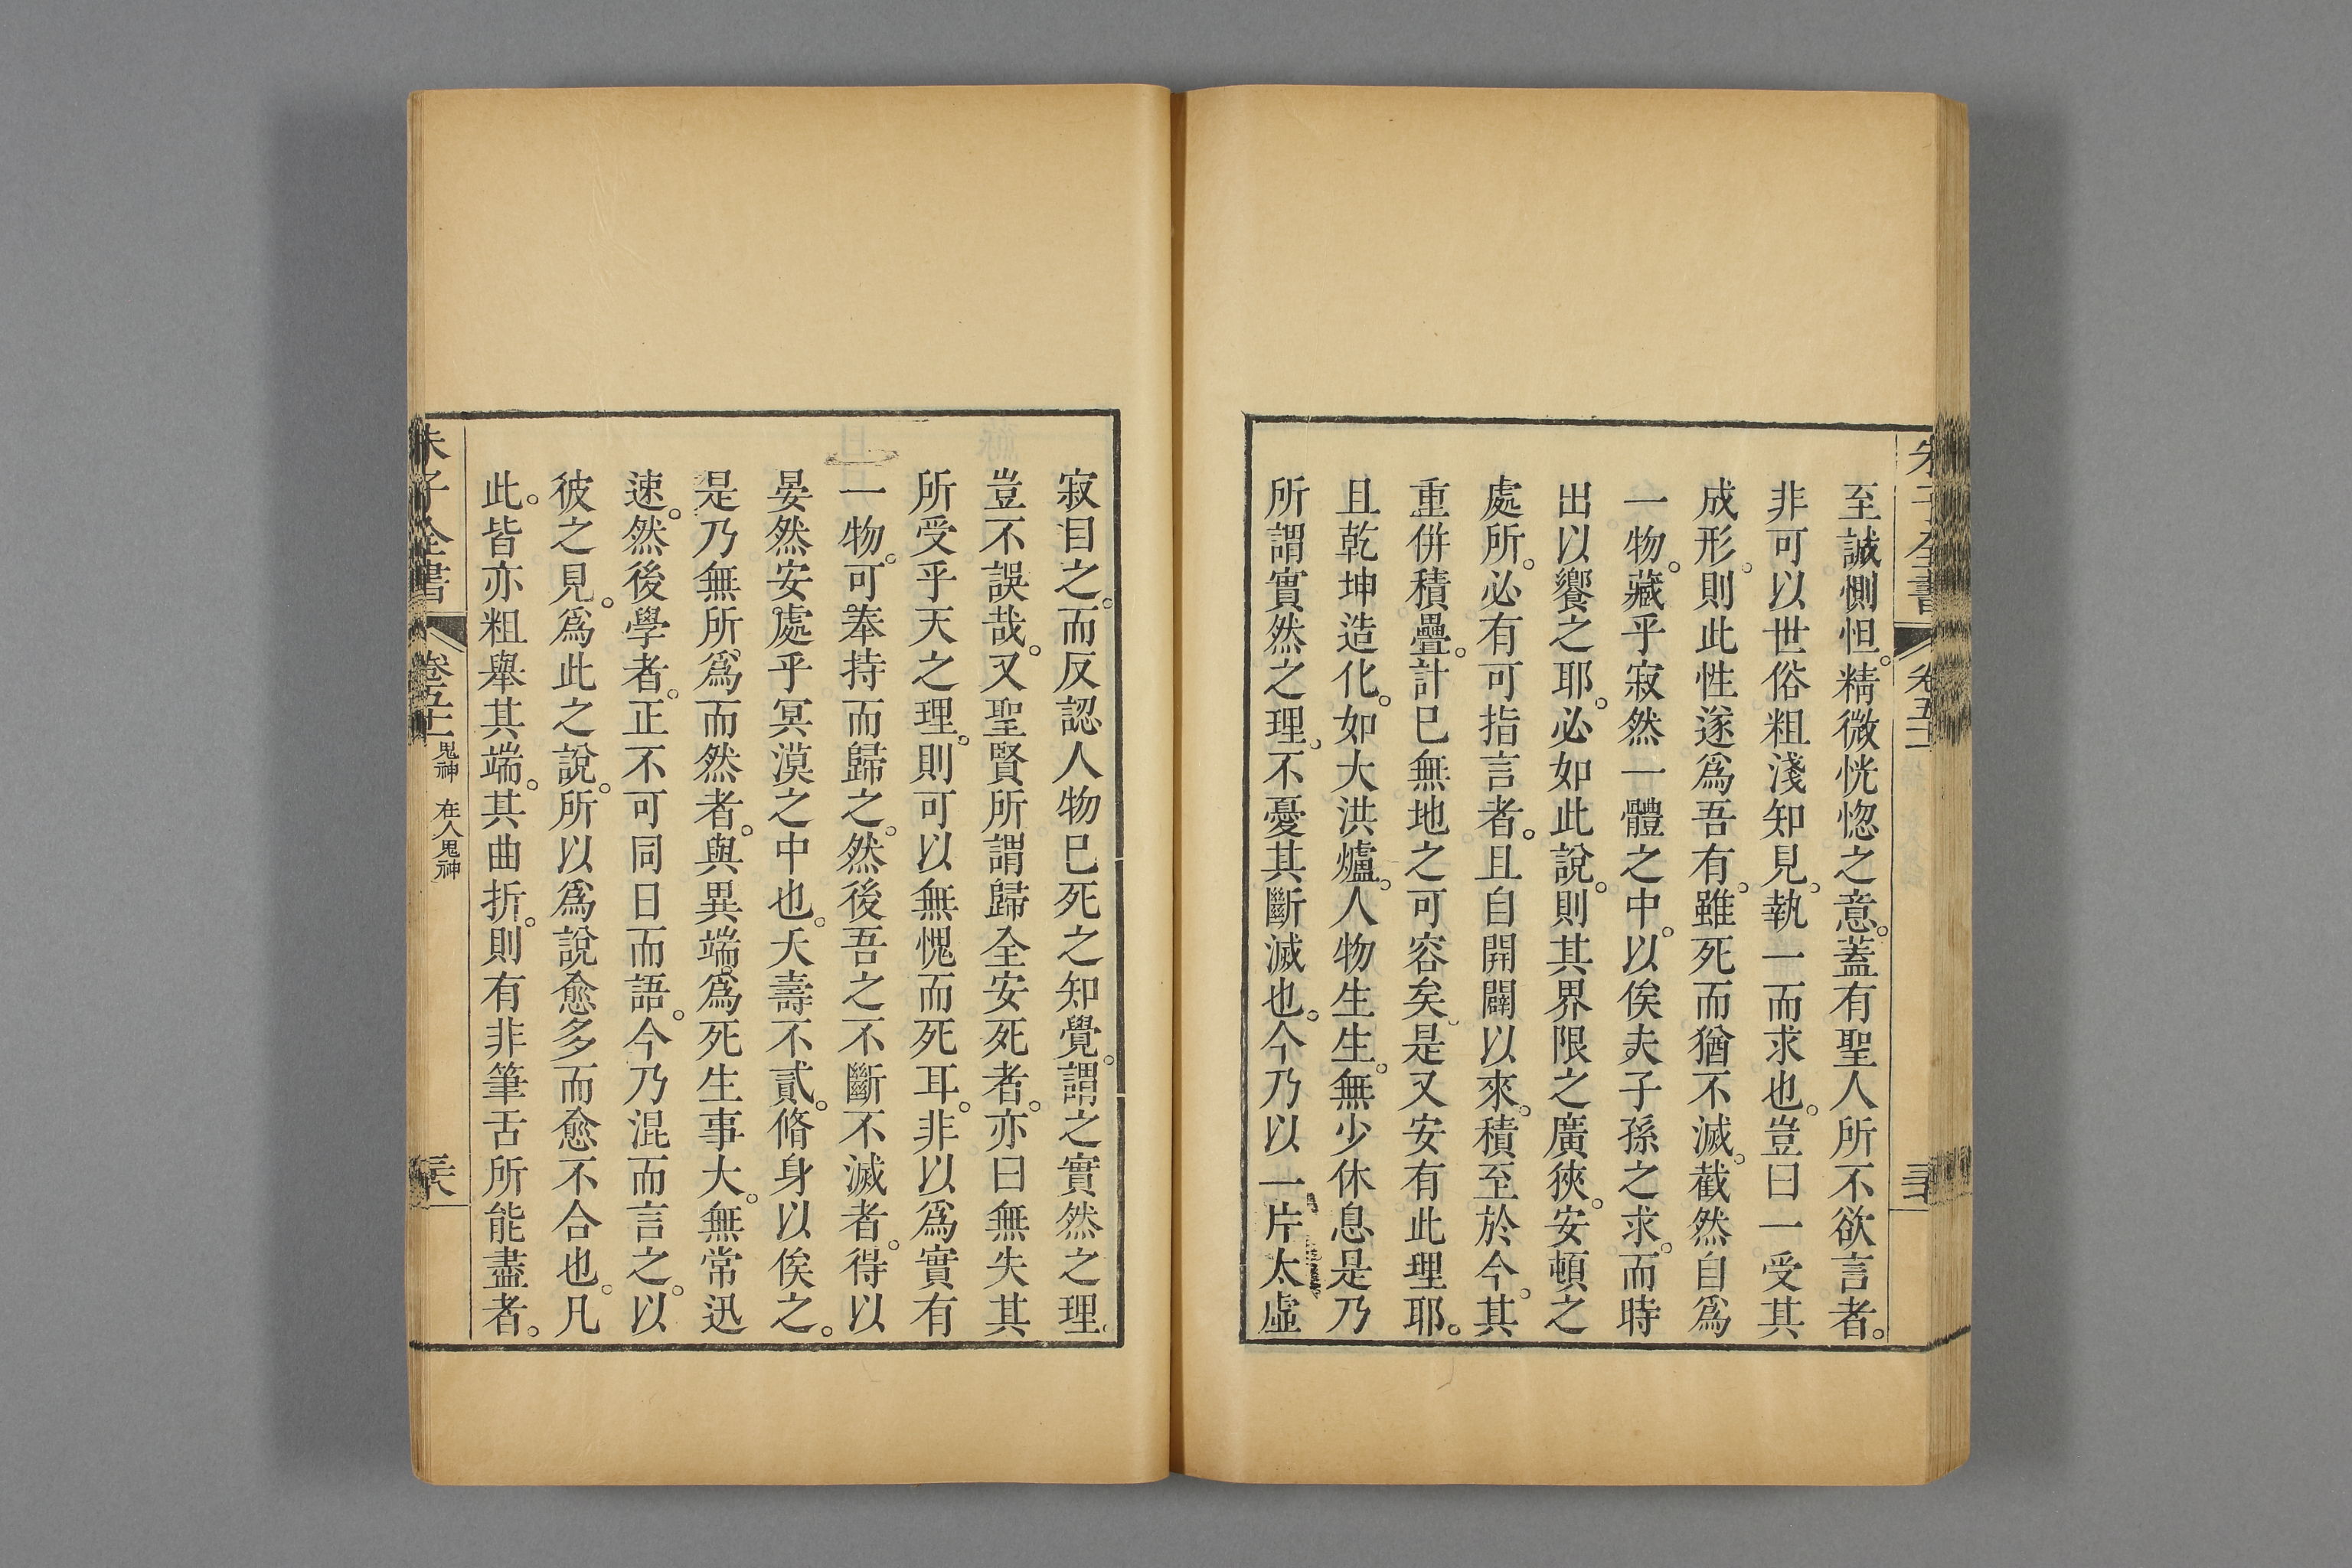 至誠惻怛。精微恍惚之意。蓋有聖人所不欲言者。
非可以世俗粗淺知見。執一而求也。豈曰一受其
成形。則此性遂爲吾有。雖死而猶不滅。截然自爲
一物。藏乎寂然一體之中。以俟夫子孫之求。而時
出以饗之耶。必如此說。則其界限之廣狹。安頓之
處所。必有可指言者。且自開闢以來。積至於今。其
重併積疊。計已無地之可容矣。是又安有此理耶。
且乾坤造化。如大洪爐。人物生生。無少休息。是乃
所謂實然之理。不憂其斷滅也。今乃以一片太虛
寂目之。而反認人物已死之知覺。謂之實然之理。
豈不誤哉。又聖賢所謂歸全安死者。亦曰無失其
所受乎天之理。則可以無愧而死耳。非以爲實有
一物。可奉持而歸之。然後吾之不斷不滅者。得以
晏然安處乎冥漠之中也。夭壽不貳。脩身以俟之。
是乃無所爲而然者。與異端爲死生事大。無常迅
速。然後學者。正不可同日而語。今乃混而言之。以
彼之見。爲此之說。所以爲說愈多而愈不合也。凡
此。皆亦粗舉其端。其曲折。則有非筆舌所能盡者。
朱子全書 鬼神 在人鬼神